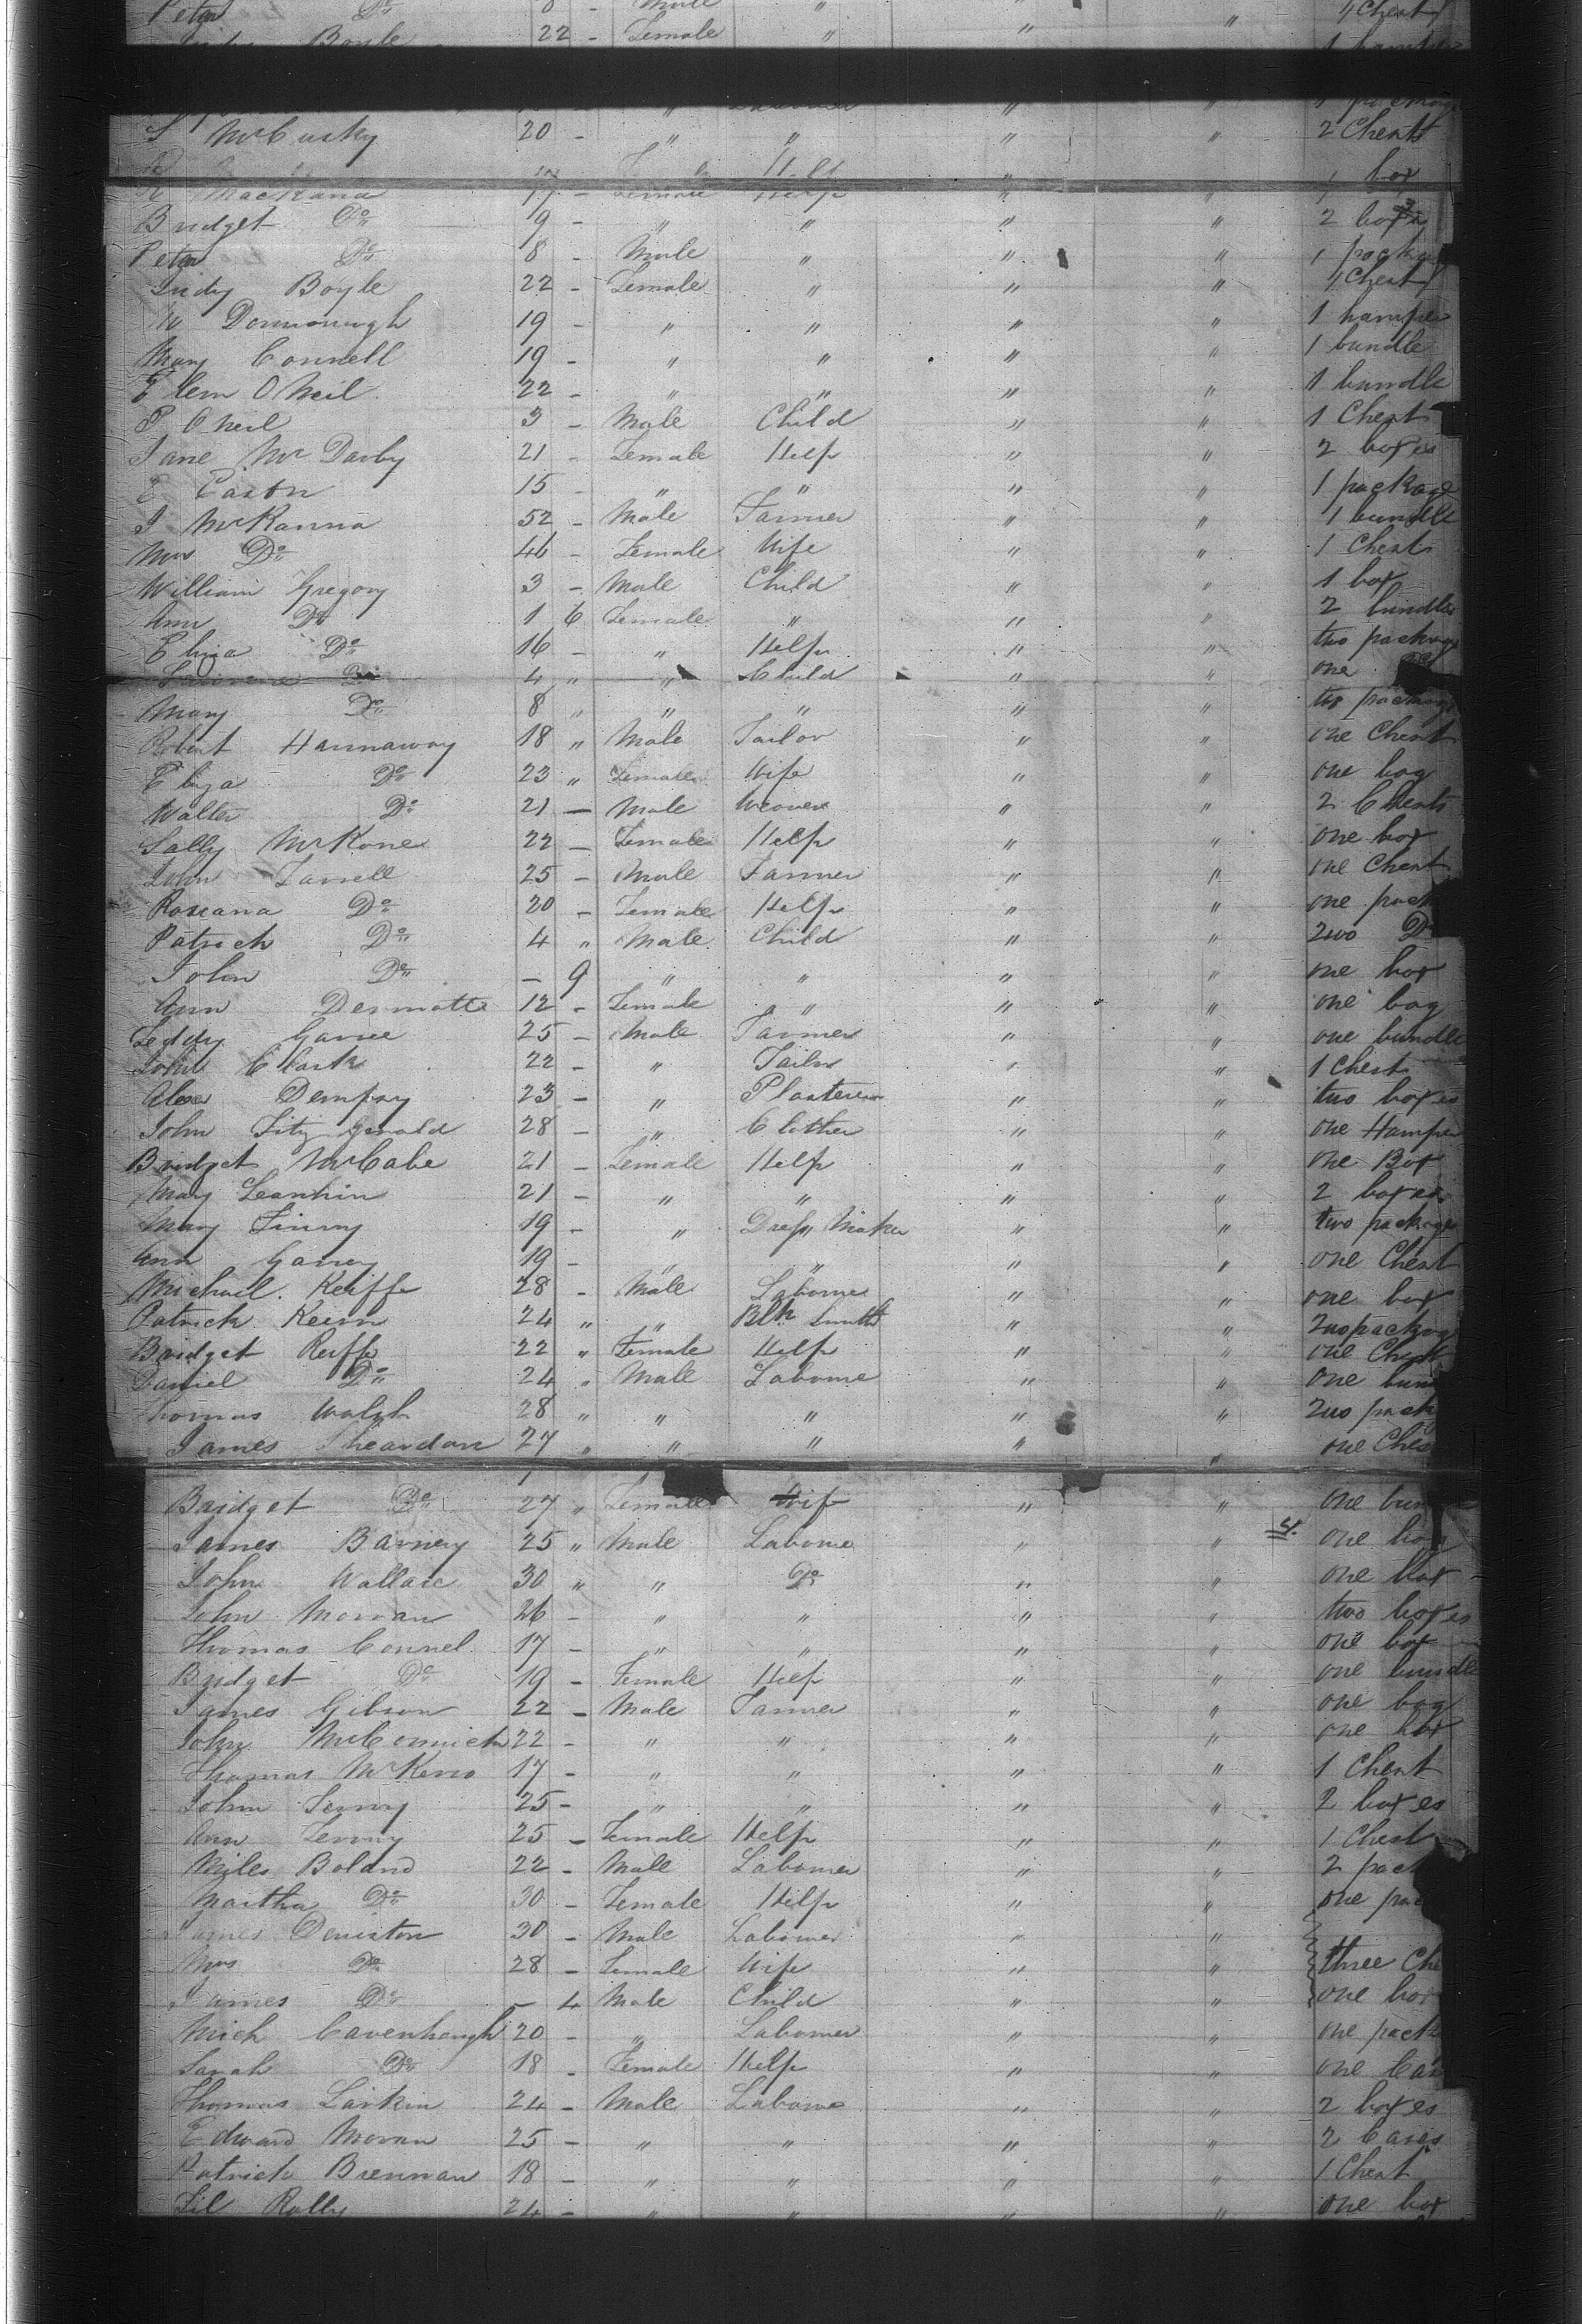 Peter Do 8 - Male " " " 1 Chest
Boyle 22 - Female " " "
" " "
McCusky 20 - " " " " 2 Chests
Help box
MacKana 17 - Female Help " " 1
Bridget Do 19 - " " " " 2 boxes
Peter Do 8 - Male " " " 1 packa
Boyle 22 - Female " " " 1 Chest
Donnonough 19 - " " " " 1 hamper
Mary Connell 19 - " " " " 1 bundle
Elem O Neil 22 - " " " " 1 bundle
P O Neil 3 - Male Child " " 1 Chest
Jane Mc Darby 21 - Female Help " " 2 boxes
E Easton 15 - " " " " 1 package
J McKanna 52 - Male Farmer " " 1 bundle
Mrs Do 46 - Female Wife " " 1 Chest
William Gregory 3 - Male Child " " 1 box
Ann Do 1 6 Female " " " 2 bundles
Eliza Do 16 - " Help " " two package
Do 4 " " Child " " one
Mary Do 8 " " " " " two package
Robert Hannaway 18 " Male Tailor " " one Chest
Eliza Do 23 " Female Wife " " one bag
Walter Do 21 - Male Weaver " " 2 Chests
Sally McKone 22 - Female Help " " one box
John Farrell 25 - Male Farmer " " one Chest
Roseana Do 20 - Female Help " " one pack
Patrick Do 4 " Male Child " " Two Do
John Do - 9 " " " " one box
Ann Dermotte 12 - Female " " " one bag
25 - Male Farmer " one bundle
John Clark 22 - " Tailor " " 1 Chest
Dempsy 23 - " Plasterer " " two boxes
John Fitz Gerald 28 - " Clother " " one Hamper
Bridget McCabe 21 - Female Help " " one Box
Mary 21 - " " " " 2 boxes
Mary 19 - " Dress Maker " " two package
Ann 19 - " " " " one Chest
Michael Keiffe 28 - Male Labourer " " one box
Patrick Keirn 24 " " Blk Smith " " Two package
Bridget Reiffe 22 " Female Help " " one Chest
Daniel Do 24 " Male Labourer " " one bun
Thomas Walsh 28 " " " " " Two pack
James Sheardon 27 " " " " " one Ches
Bridget Do 27 " Female Wife " " one bun
James Barney 25 " Male Labourer " " 4. one box
John Wallace 30 " " Do " " one box
John Morran 26 - " " " " two boxes
Thomas Connel 17 - " " " " one box
Bridget Do 19 - Female Help " " one bundle
James Gibson 22 - Male Farmer " " one bag
John McCormick 22 - " " " " one box
Thomas McKeno 17 - " " " " 1 Chest
John 25 - " " " " 2 boxes
Ann 25 - Female Help " " 1 Chest
Miles Boland 22 - Male Labourer " " 2 pack
Martha Do 30 - Female Help " " one pac
James Deniston 30 - Male Labourer " "
Mrs Do 28 - Female Wife " " three Che
James Do - 4 Male Child " " one box
Mich Cavenhaugh 20 - " Labourer " " one pack
Sarah Do 18 - Female Help " " one Cas
Thomas Larkin 24 - Male Labourer " " 2 boxes
Edward Moran 25 - " " " " 2 Cases
Patrick Brennan 18 - " " " " 1 Chest
24 - " " " " one box